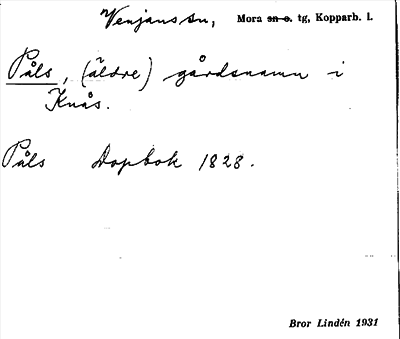 Venjans sn, Mora sn o. tg, Kopparb. l.
Påls, (äldre) gårdsnamn i
Knås.
Påls Dopbok 1828.
Bror Lindén 1931